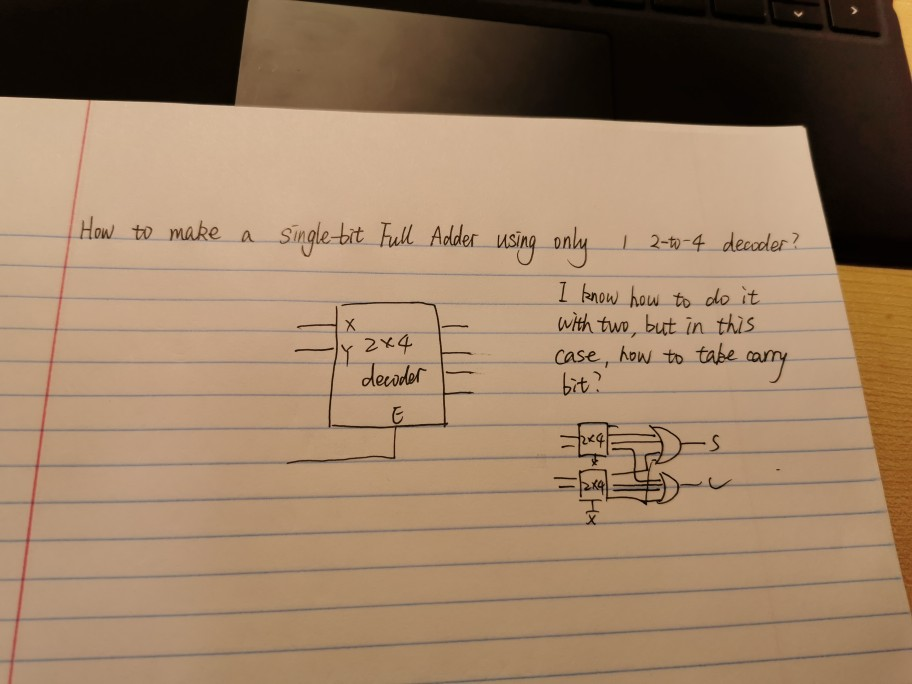 How to make a single-bit Full Adder using only 1 2-to-4 decoder?
I know how to do it
with two, but in this
case, how to take carry
bit?
X
Y 2×4
decoder
E
2×4
S
2×4
C
X